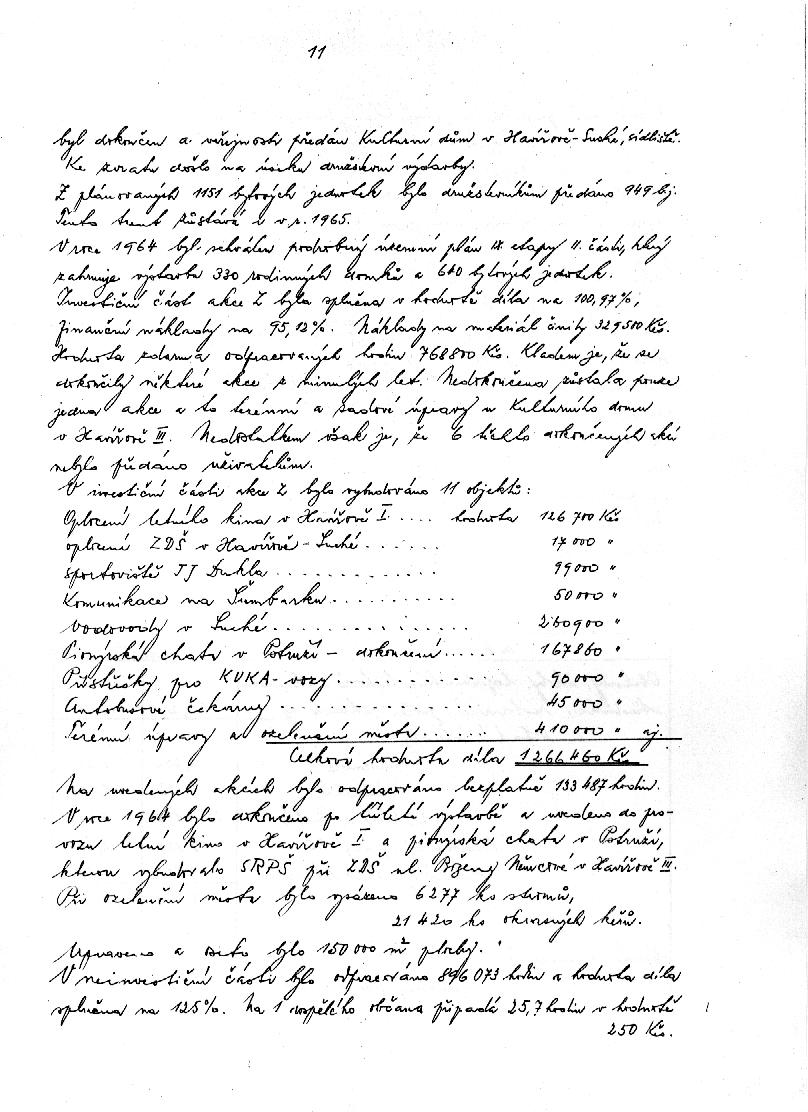 11
byl dokončen a veřejnosti předán Kulturní dům v Havířově-Suché, sídliště.
Ke zvratu došlo na úseku družstevní výstavby.
Z plánovaných 1151 bytových jednotek bylo družstevníkům předáno 949 bj.
Tento trend zůstává i v r. 1965.
V roce 1964 byl schválen podrobný územní plán IX etapy II. části, který
zahrnuje výstavbu 330 rodinných domků a 660 bytových jednotek.
Investiční část akce Z byla splněna v hodnotě díla na 100,97%,
finanční náklady na 95,12%. Náklady na materiál činily 329500 Kčs.
Hodnota zdarma odpracovaných hodin 768800 Kčs. Kladem je, že se
dokončily některé akce z minulých let. Nedokončena zůstala pouze
jedna akce a to terénní a sadové úpravy u Kulturního domu
v Havířově III. Nedostatkem však je, že 6 těchto dokončených akcí
nebylo předáno uživatelům.
V investiční části akce Z bylo vybudováno 11 objektů:
Oplocení letního kina v Havířově I .... hodnota 126 700 Kčs
oplocení ZDŠ v Havířově-Suché....... 17 000 "
sportoviště TJ Dukla............... 99 000 "
Komunikace na Šumbarku.......... 50 000 "
Vodovody v Suché............... 260 900 "
Pionýrská chata v Potruží - dokončení...... 167 860 "
Přístřešky pro KUKA-vozy............ 90 000 "
Autobusové čekárny............... 45 000 "
Terénní úpravy a ozelenění města....... 410 000 " aj.
Celková hodnota díla 1 266 460 Kčs
Na uvedených akcích bylo odpracováno bezplatně 133 487 hodin.
V roce 1964 bylo dokončeno po tříleté výstavbě a uvedeno do pro-
vozu letní kino v Havířově I a pionýrská chata v Potruží,
kterou vybudovalo SRPŠ při ZDŠ ul. Boženy Němcové v Havířově III.
Při ozelenění města bylo vysázeno 6277 ks stromů,
21 420 ks okrasných keřů.
Upraveno a oseto bylo 150 000 m² plochy.
V neinvestiční části bylo odpracováno 896 073 hodin a hodnota díla
splněna na 125%. Na 1 dospělého občana připadá 25,7 hodin v hodnotě
250 Kčs.